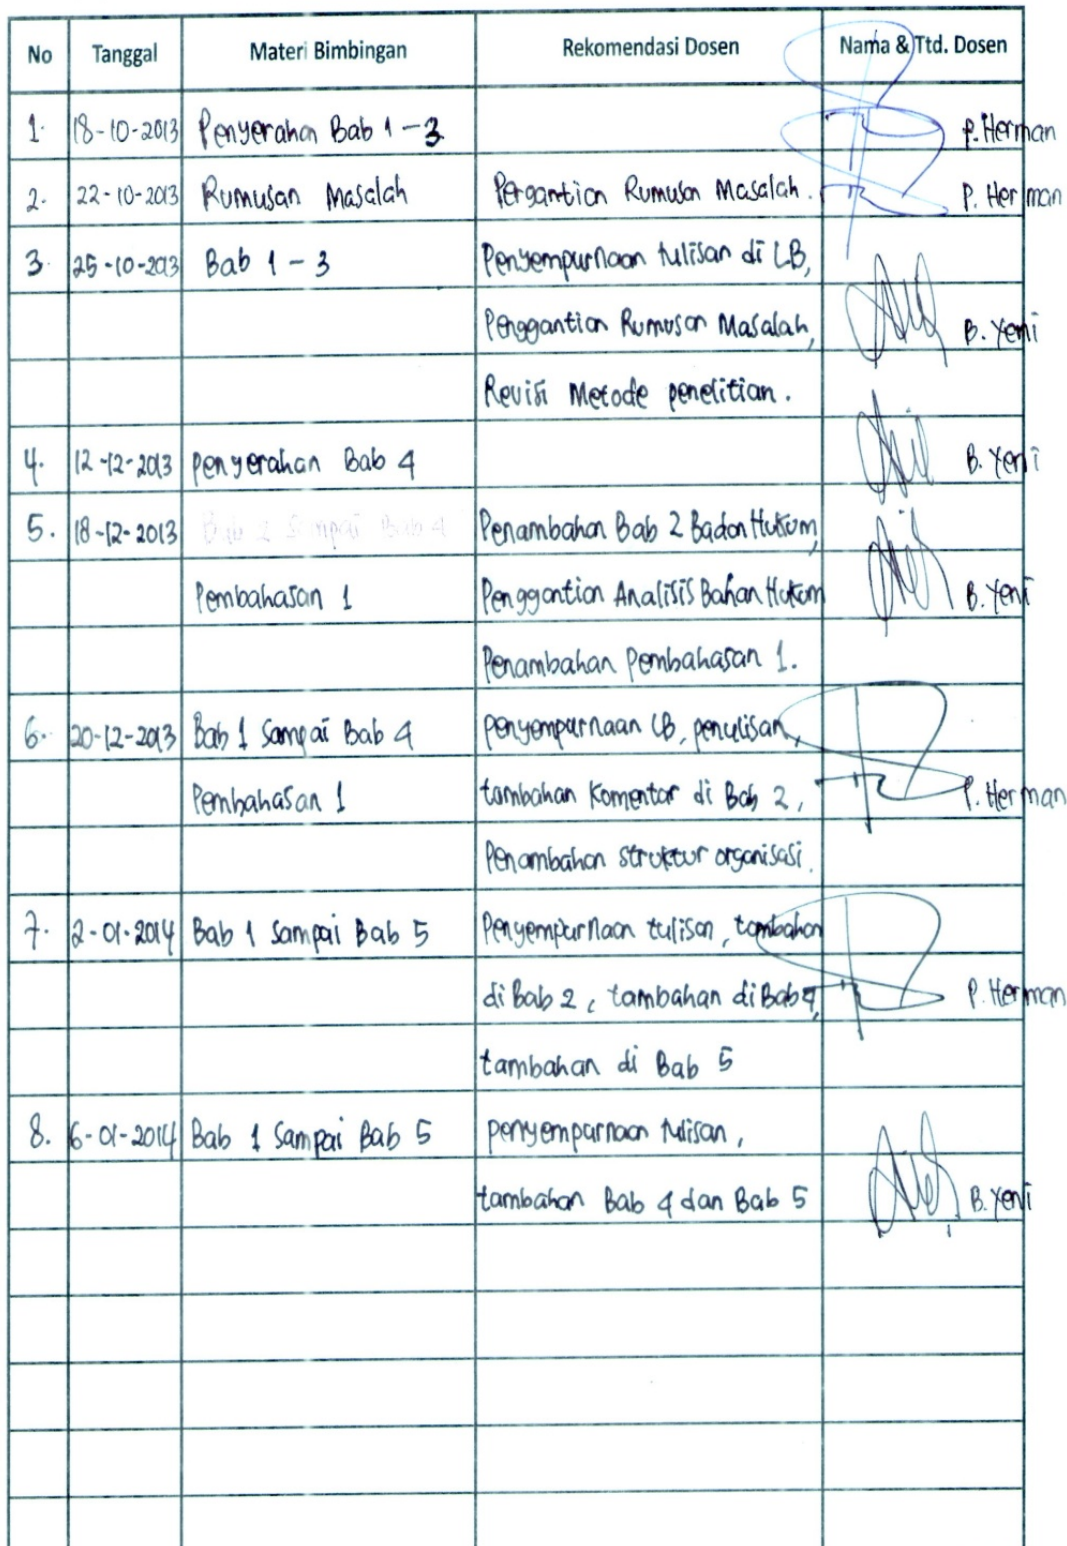 No Tanggal Materi Bimbingan Rekomendasi Dosen Nama & Ttd. Dosen
1. 18-10-2013 Penyerahan Bab 1 - 3 P. Herman
2. 22-10-2013 Rumusan Masalah Pergantian Rumusan Masalah. P. Herman
3. 25-10-2013 Bab 1 - 3 Penyempurnaan tulisan di LB,
Penggantian Rumusan Masalah, B. Yeni
Revisi Metode penelitian.
4. 12-12-2013 Penyerahan Bab 4 B. Yeni
5. 18-12-2013 Bab 2 Sampai Bab 4 Penambahan Bab 2 Badan Hukum,
Pembahasan 1 Penggantian Analisis Bahan Hukum B. Yeni
Penambahan Pembahasan 1.
6. 20-12-2013 Bab 1 Sampai Bab 4 Penyempurnaan LB, penulisan,
Pembahasan 1 tambahan Komentar di Bab 2, P. Herman
Penambahan struktur organisasi.
7. 2-01-2014 Bab 1 Sampai Bab 5 Penyempurnaan tulisan, tambahan
di Bab 2, tambahan di Bab 4, P. Herman
tambahan di Bab 5
8. 6-01-2014 Bab 1 Sampai Bab 5 penyempurnaan tulisan,
tambahan Bab 4 dan Bab 5 B. Yeni